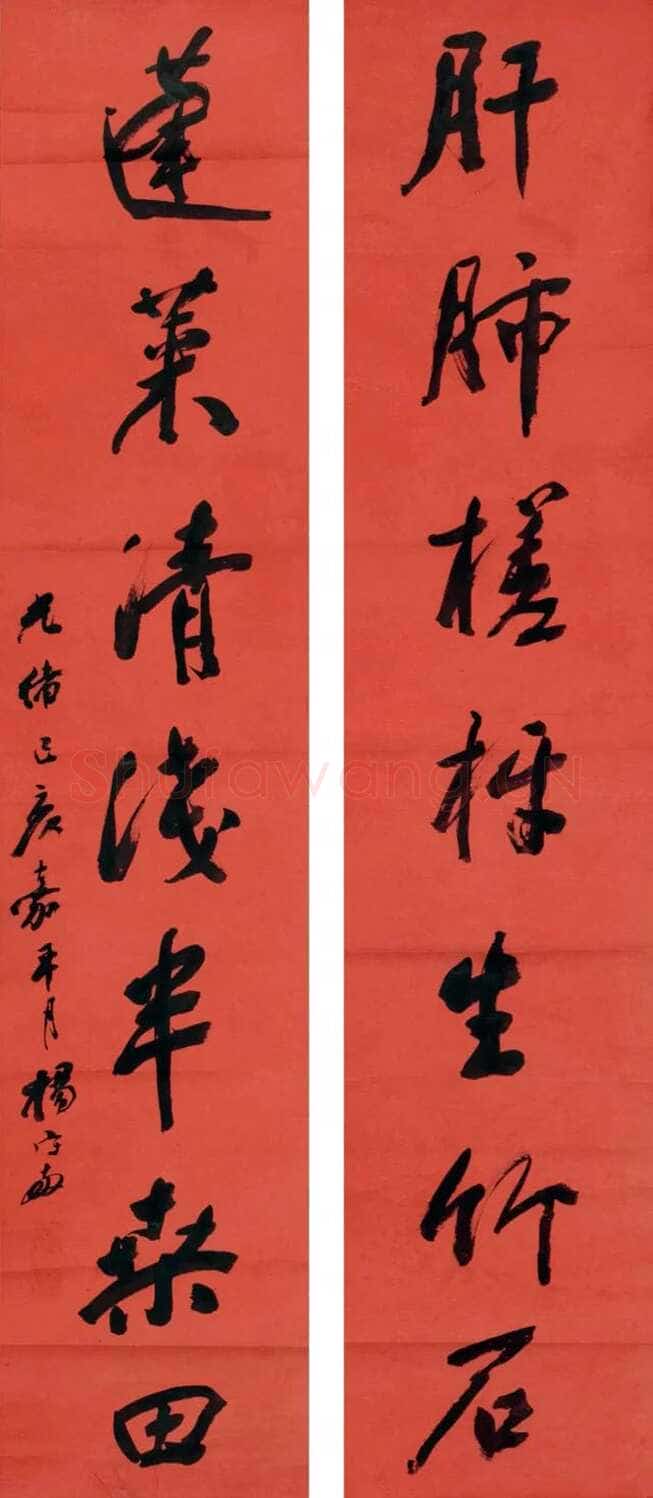 肝肺槎枒生竹石
蓬莱清浅半桑田
光绪己亥嘉平月杨守敬
ShufawangCN